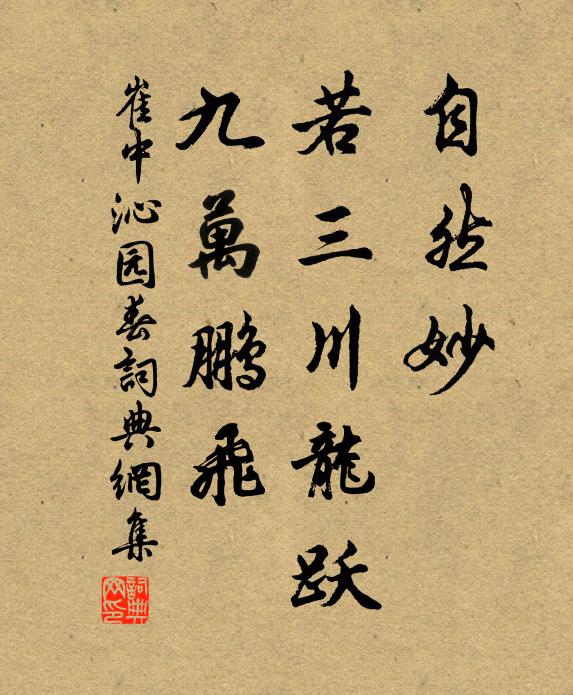 自然妙
若三川龍跃
九萬鵬飛
崔中沁园春詞典網集
詞典网印